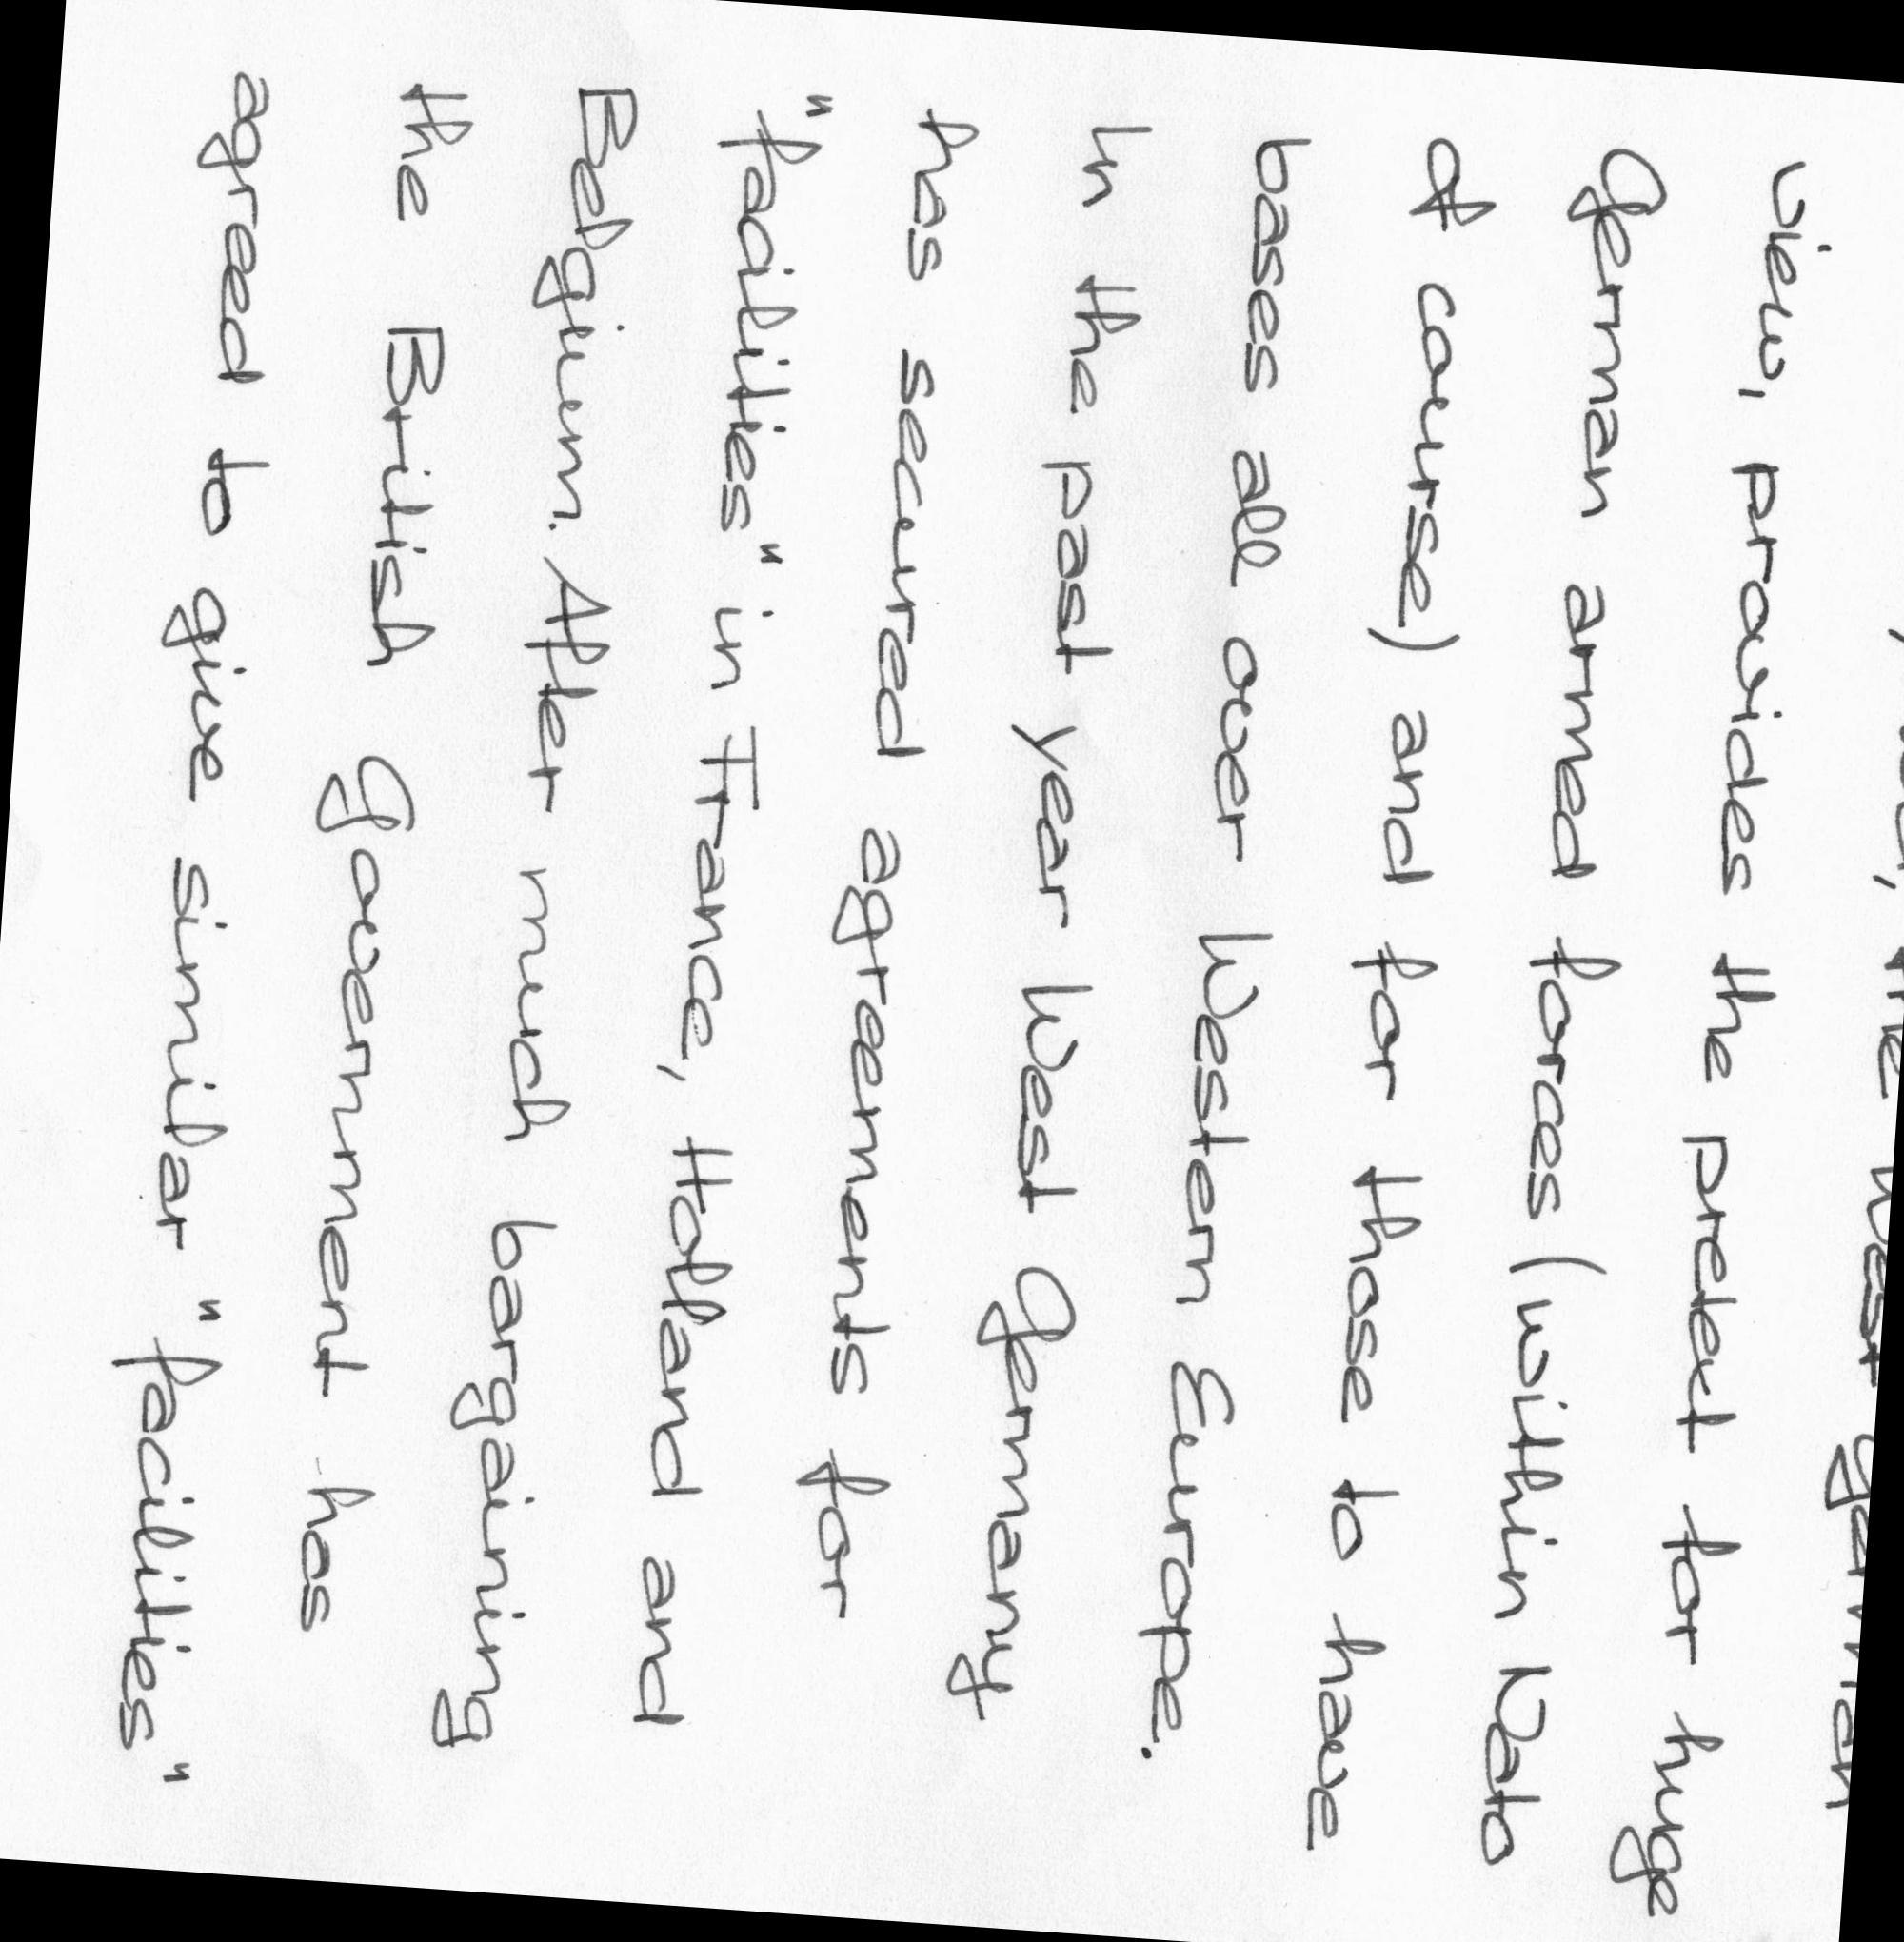 the West German
view, provides the pretext for huge
German armed forces (within Nato
of course) and for those to have
bases all over Western Europe.
In the past year West Germany
has secured agreements for
"facilities" in France, Holland and
Belgium. After much bargaining
the British Government has
agreed to give similar "facilities"